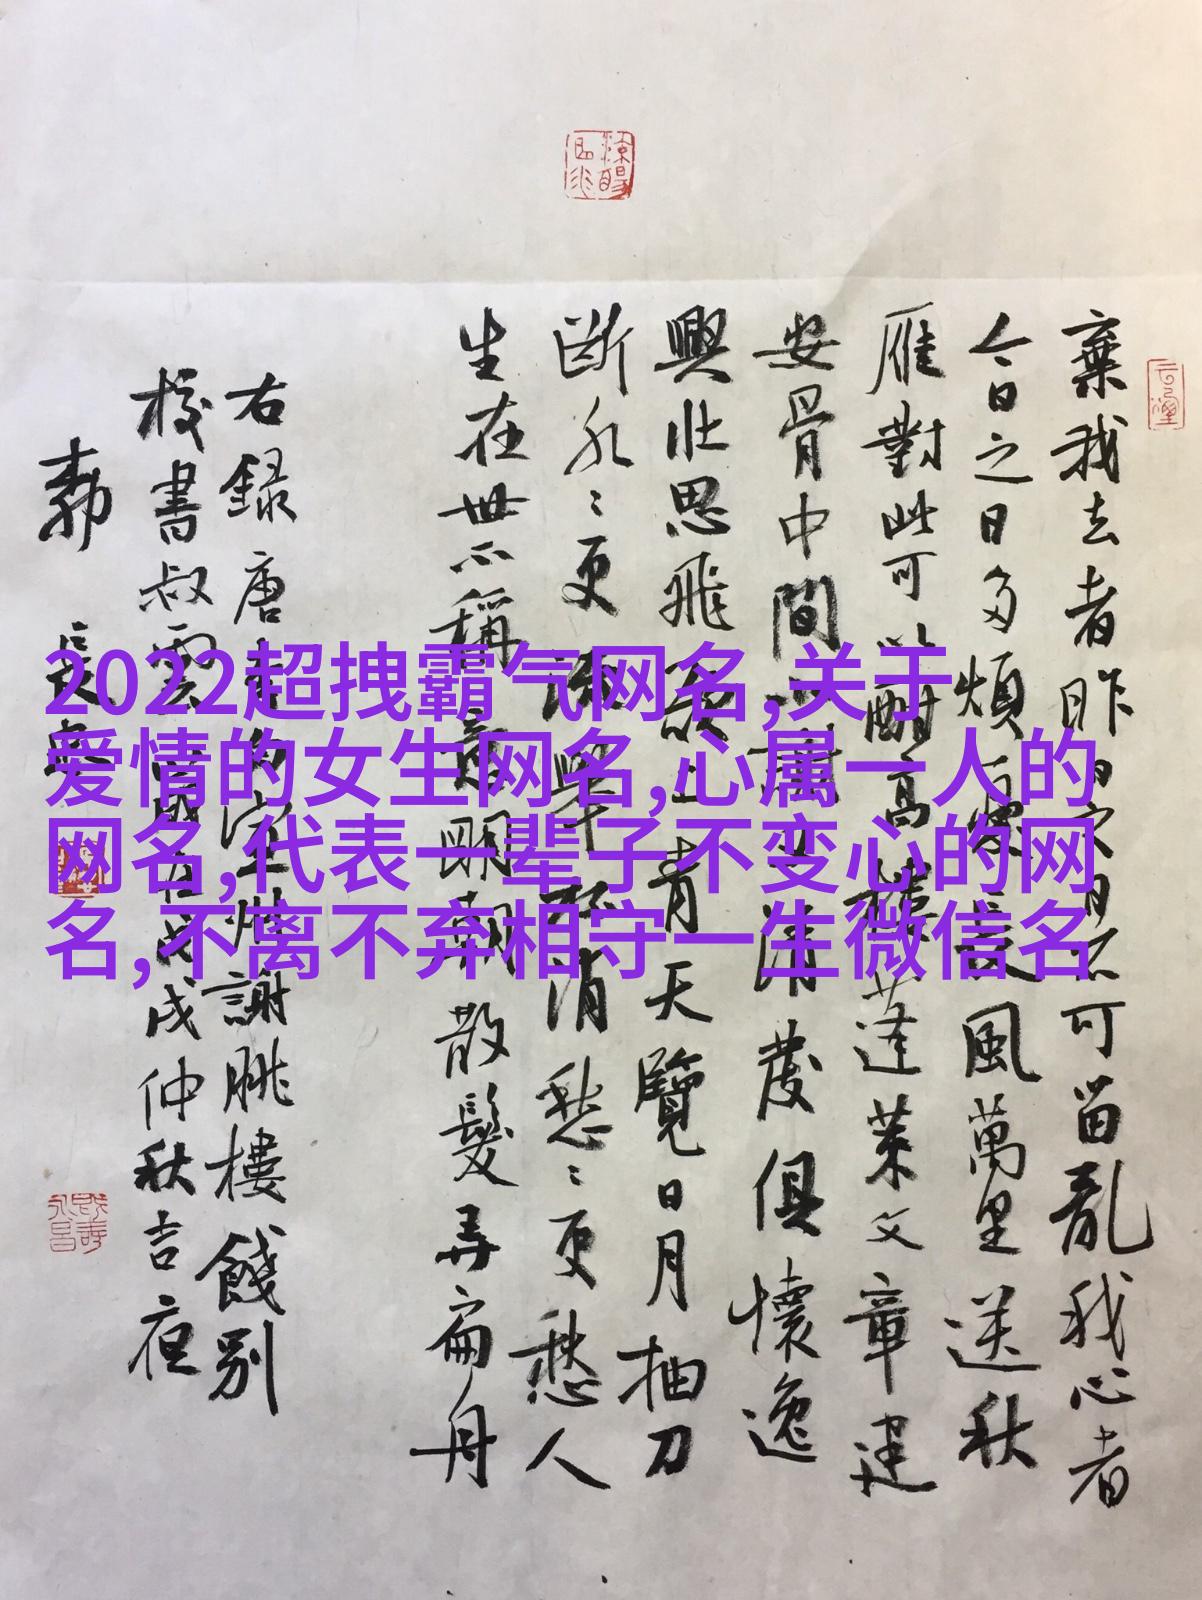 2022超拽霸气网名,关于
爱情的女生网名,心属一人的
网名,代表一辈子不变心的网
名,不离不弃相守一生微信名
棄我去者昨日之日不可留亂我心者
今日之日多煩憂長風萬里送秋
雁對此可以酣高樓蓬萊文章建
安骨中間小謝又清發俱懷逸
興壯思飛欲上青天覽日月抽刀
斷水〻更流舉杯消愁〻更愁人
生在世不稱意明朝散髮弄扁舟
右錄唐李白宣州謝朓樓餞別
校書叔雲歲在戊戌仲秋吉夜